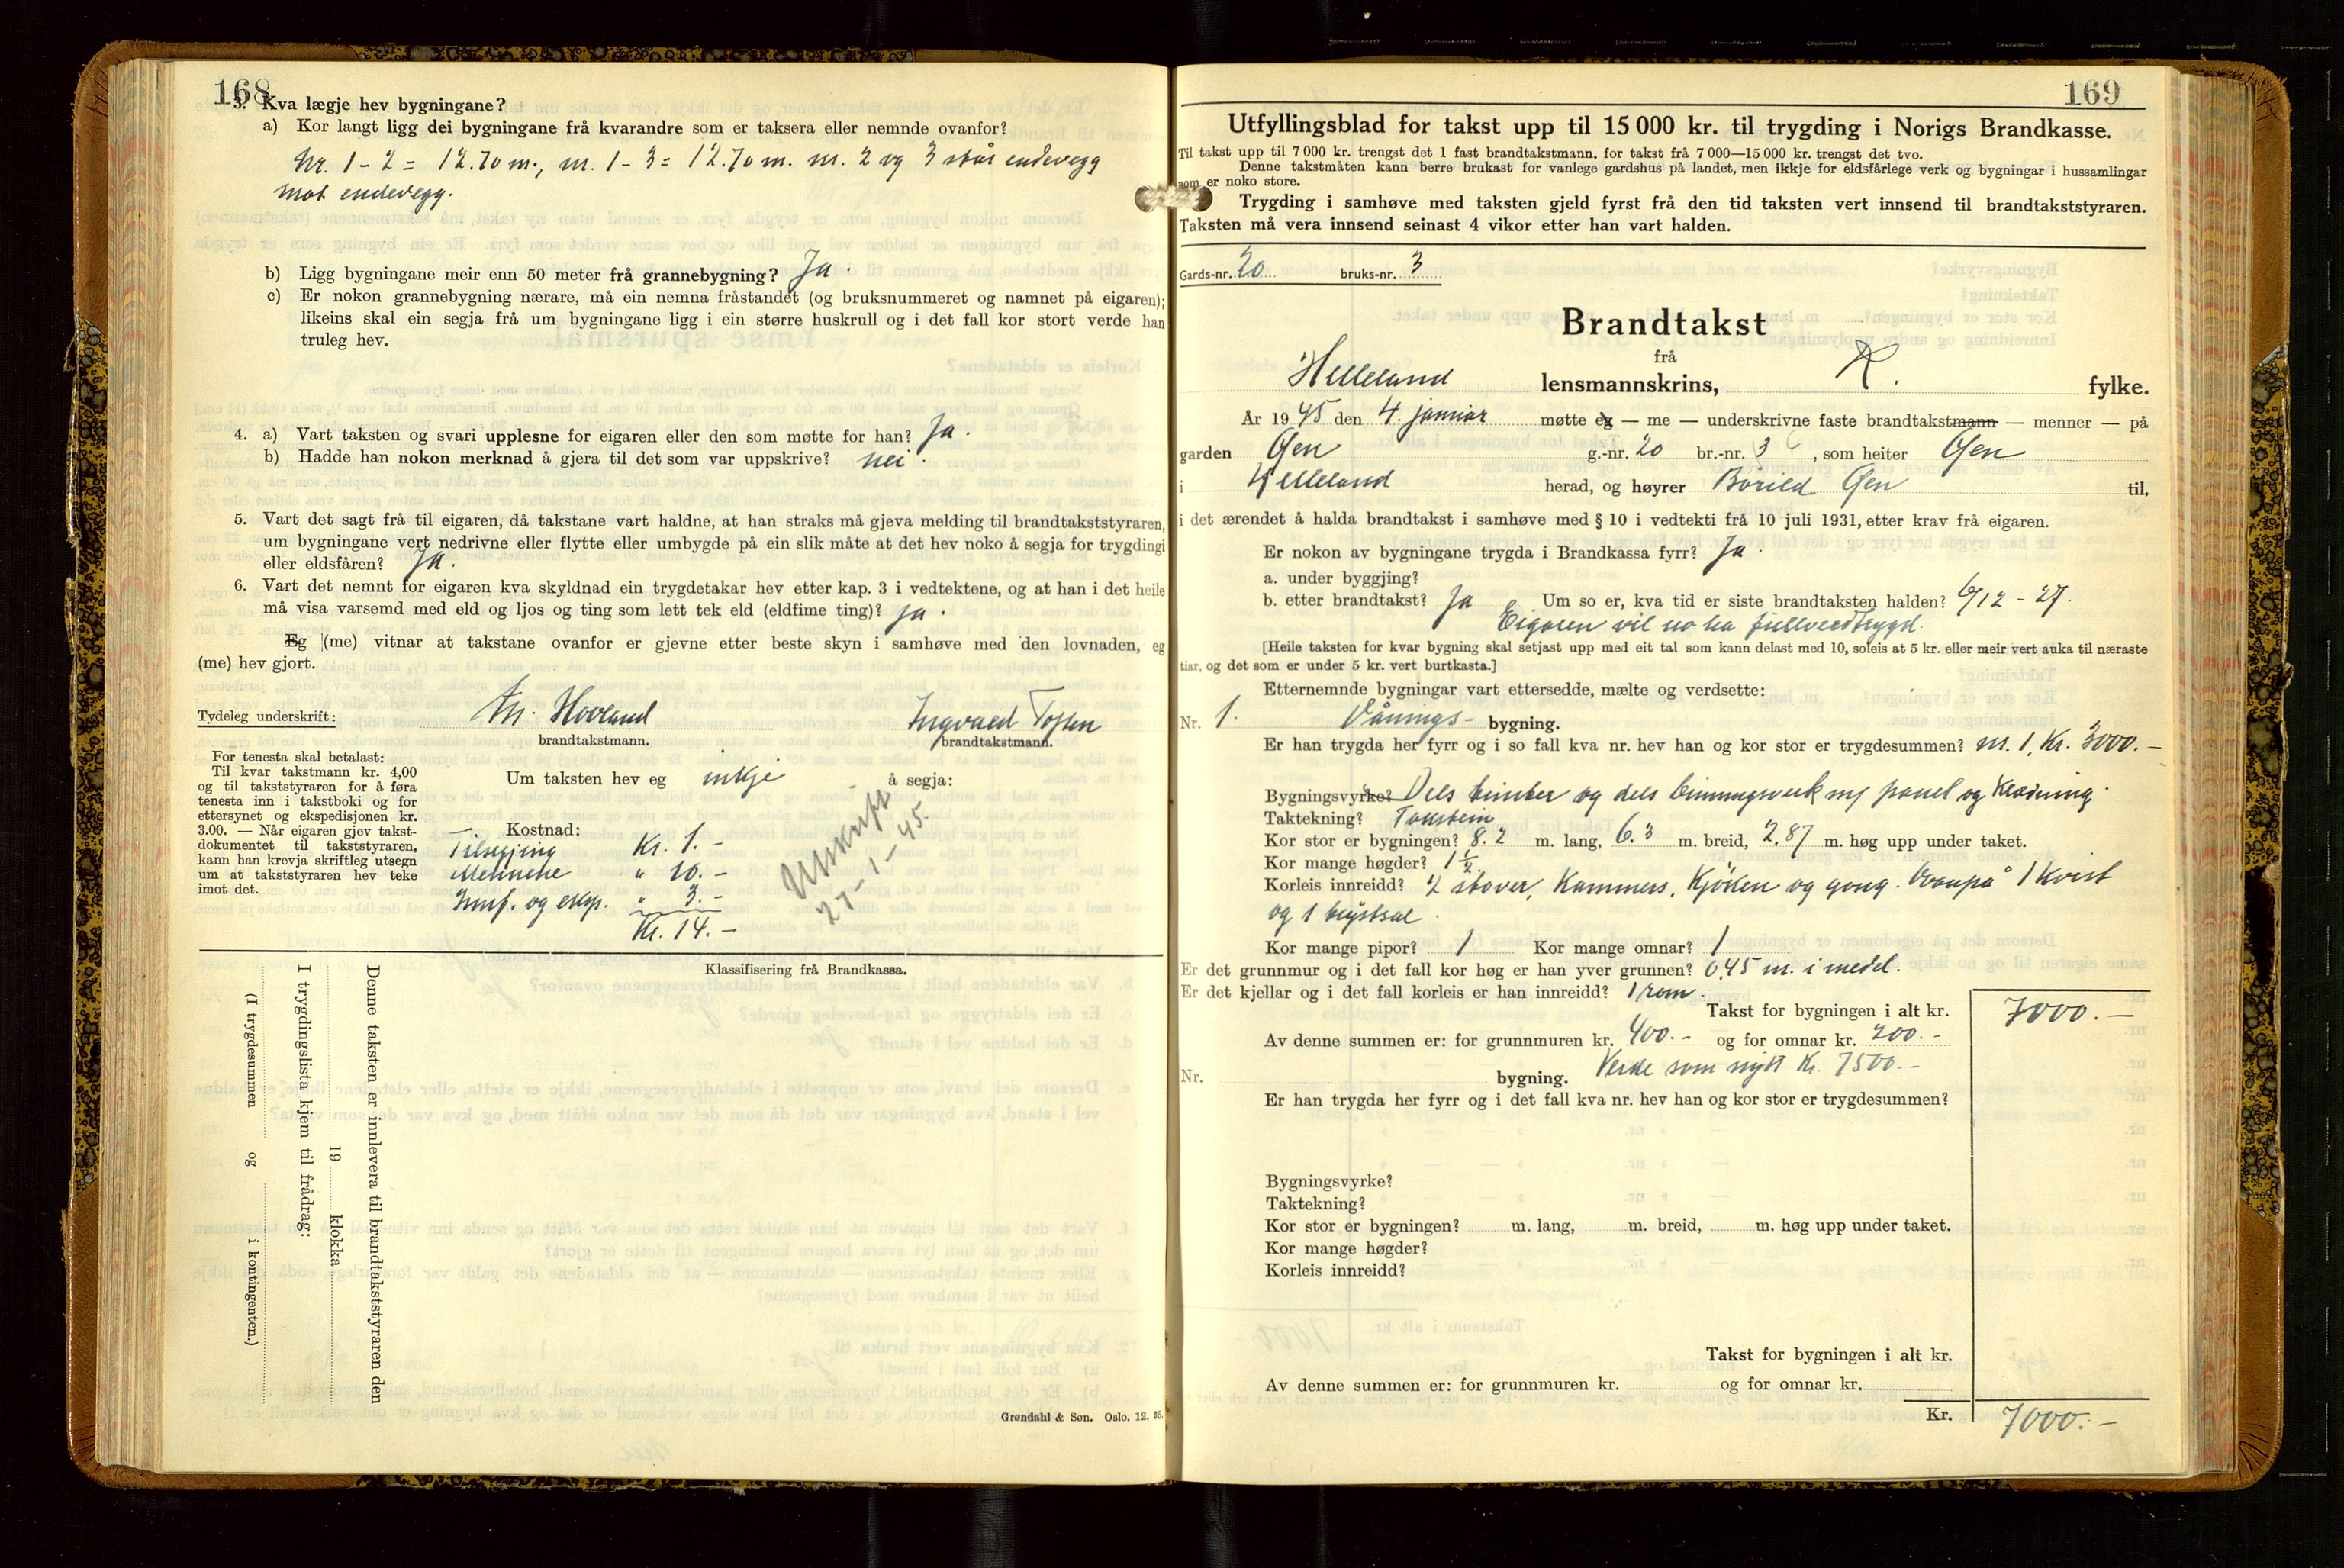 168
3. Kva lægje hev bygningane?
a) Kor langt ligg dei bygningane frå kvarandre som er taksera eller nemnde ovanfor?
Nr. 1 - 2 = 12.70 m., nr. 1 - 3 = 12.70 m. nr. 2 og 3 står endevegg
mot endevegg.
b) Ligg bygningane meir enn 50 meter frå grannebygning? Ja.
c) Er nokon grannebygning nærare, må ein nemna fråstandet (og bruksnummeret og namnet på eigaren);
likeins skal ein segja frå um bygningane ligg i ein større huskrull og i det fall kor stort verde han
truleg hev.
4. a) Vart taksten og svari upplesne for eigaren eller den som møtte for han? Ja.
b) Hadde han nokon merknad å gjera til det som var uppskrive? nei.
5. Vart det sagt frå til eigaren, då takstane vart haldne, at han straks må gjeva melding til brandtakststyraren,
um bygningane vert nedrivne eller flytte eller umbygde på ein slik måte at det hev noko å segja for trygdingi
eller eldsfåren? Ja.
6. Vart det nemnt for eigaren kva skyldnad ein trygdetakar hev etter kap. 3 i vedtektene, og at han i det heile
må visa varsemd med eld og ljos og ting som lett tek eld (eldfime ting)? ja.
Eg (me) vitnar at takstane ovanfor er gjevne etter beste skyn i samhøve med den lovnaden, eg
(me) hev gjort.
Tydeleg underskrift: Hovland Ingvald Tosten
brandtakstmann. brandtakstmann.
For tenesta skal betalast:
Til kvar takstmann kr. 4,00
og til takststyraren for å føra
tenesta inn i takstboki og for
ettersynet og ekspedisjonen kr.
3.00. — Når eigaren gjev takst-
dokumentet til takststyraren,
kann han krevja skriftleg utsegn
um at takststyraren hev teke
imot det.
Um taksten hev eg inkje å segja:
Kostnad:
Tilsegjing Kr. 1.-
Mennene " 10.-
Innf. og eksp. " 3.-
Kr. 14.-
Utskrift
27-1-45.
Klassifisering frå Brandkassa.
Denne taksten er innlevera til brandtakststyraren den
19 klokka
I trygdingslista kjem til frådrag:
(I trygdesummen og i kontingenten.)
Grøndahl & Søn. Oslo. 12. 35.
169
Utfyllingsblad for takst upp til 15 000 kr. til trygding i Norigs Brandkasse.
Til takst upp til 7 000 kr. trengst det 1 fast brandtakstmann, for takst frå 7 000—15 000 kr. trengst det tvo.
Denne takstmåten kann berre brukast for vanlege gardshus på landet, men ikkje for eldsfårlege verk og bygningar i hussamlingar
som er noko store.
Trygding i samhøve med taksten gjeld fyrst frå den tid taksten vert innsend til brandtakststyraren.
Taksten må vera innsend seinast 4 vikor etter han vart halden.
Gards-nr. 20 bruks-nr. 3
Brandtakst
frå
Helleland lensmannskrins, R. fylke.
År 1945 den 4. januar møtte eg — me — underskrivne faste brandtakstmann — menner — på
garden Gjen g.-nr. 20 br.-nr. 3, som heiter Gjen
i Helleland herad, og høyrer Borild Gjen til,
i det ærendet å halda brandtakst i samhøve med § 10 i vedtekti frå 10 juli 1931, etter krav frå eigaren.
Er nokon av bygningane trygda i Brandkassa fyrr? Ja.
a. under byggjing?
b. etter brandtakst? Ja Um so er, kva tid er siste brandtaksten halden? 6/12 - 27.
Eigaren vil no ha fullverdtrygd.
[Heile taksten for kvar bygning skal setjast upp med eit tal som kann delast med 10, soleis at 5 kr. eller meir vert auka til næraste
tiar, og det som er under 5 kr. vert burtkasta.]
Etternemnde bygningar vart ettersedde, mælte og verdsette:
Nr. 1. Vånings- bygning.
Er han trygda her fyrr og i so fall kva nr. hev han og kor stor er trygdesummen? nr. 1, Kr. 3000.-
Bygningsvyrke? Dels timber og dels binningsverk m/ panel og kledning.
Taktekning? Takstein
Kor stor er bygningen? 8.2 m. lang, 6.3 m. breid, 2.87 m. høg upp under taket.
Kor mange høgder? 1 ½
Korleis innreidd? 2 stover, kammers, kjøken og gong. Ovanpå 1 kvist
og 1 bustsal.
Kor mange pipor? 1 Kor mange omnar? 1
Er det grunnmur og i det fall kor høg er han yver grunnen? 0,45 m. i medel.
Er det kjellar og i det fall korleis er han innreidd? 1 rom.
Takst for bygningen i alt kr. 7000.-
Av denne summen er: for grunnmuren kr. 400.- og for omnar kr. 200.-
Nr. bygning. Verde som nytt Kr. 7500.-
Er han trygda her fyrr og i det fall kva nr. hev han og kor stor er trygdesummen?
Bygningsvyrke?
Taktekning?
Kor stor er bygningen? m. lang, m. breid, m. høg upp under taket.
Kor mange høgder?
Korleis innreidd?
Takst for bygningen i alt kr.
Av denne summen er: for grunnmuren kr. og for omnar kr.
Kr. 7000.-